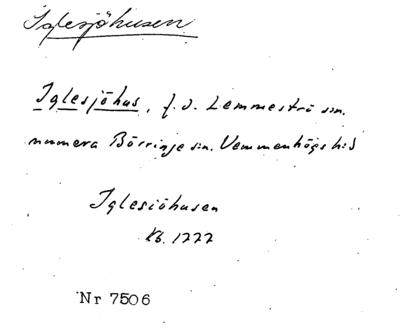 Iglesjöhusen
Iglesjöhus, f.d. Lemmeströ sn.
numera Börringe sn. Vemmenhögs hd
Iglesiöhusen
Kb. 1777
Nr 7506